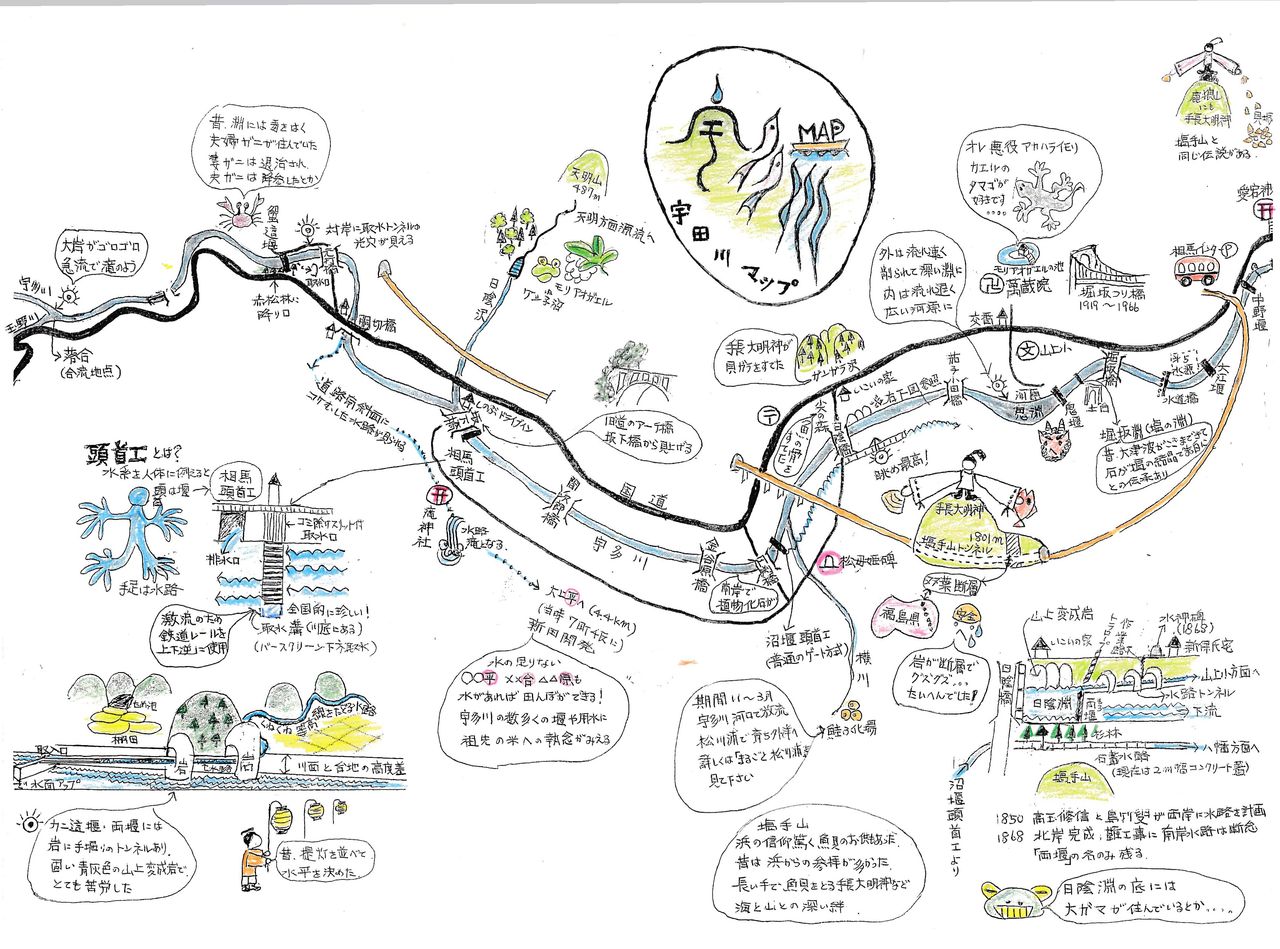 MAP
宇田川
マップ
竜狼山
にも
手長大明神
貝塚
塩手山と
同じ伝説がある.
愛宕神
昔、淵には毒をはく
夫婦ガニが住んでいた
妻ガニは退治され
夫ガニは降参したとか
大岩がゴロゴロ
急流で滝のよう
宇多川
玉野川
落合
(合流地点)
蟹這堰
対岸に取水トンネルの
光穴が見える
取水口
赤松林に
降り口
天明山
487m
天明方面源流へ
モリアオガエル
日陰沢
胴切橋
道路南斜面に
コケむした水路が見られる
しのぶドライブイン
旧道のアーチ橋
坂下橋から見上げる
手長大明神が
貝ガラをすてた
外は流れ速く
削られて深い淵に
内は流れ遅く
広い河原に
オレ悪役アカハライモリ
カエルの
タマゴが
好きです
モリアオガエルの池
萬蔵院
堀坂つり橋
1919〜1966
相馬インター
P
中野堰
交番
山上小
いこいの家
没有下図参照
茄子小田橋
鬼淵
鬼堰
堀坂橋
土台
水道橋
大江堰
堀坂淵(塩の淵)
昔、大津波がここまできて
石が塩の結晶で真白に
との伝承あり
眺め最高!
手長大明神
1801m
塩手山トンネル
双葉断層
福島県
安全
岩が断層で
グズグズ...
たいへんでした!
頭首工とは?
水系を人体に例えると
頭は堰
手足は水路
相馬
頭首工
ゴミ除けスリット付
取水口
排水口
全国的に珍しい!
取水溝(川底にある)
(バースクリーン下方取水)
激流のため
鉄道レールを
上下逆に使用
相馬
頭首工
滝神社
水路
滝となる
国道
宇多川
大上平へ(4.4km)
(当時7町4反に)
新田開発
水の足りない
○○平 ××台 △△原も
水があれば田んぼができる!
宇多川の数多くの堰や用水に
祖先の米への執念がみえる
南岸で
植物化石が
松母姫碑
沼堰頭首工
(普通のゲート方式)
横川
鮭ふ化場
期間11〜3月
宇多川河口で放流
松川浦で育ち外洋へ
詳しくは「まるごと松川浦」を
見て下さい
ため池
棚田
くねくね等高線をたどる水路
取入口
岩
岩
川面と台地の高度差
水面アップ
カニ這堰・両堰には
岩に手掘りのトンネルあり.
固い青灰色の山上変成岩で
とても苦労した
昔、提灯を並べて
水平を決めた
塩手山
浜の信仰篤く魚貝のお供えあった.
昔は浜からの参拝が多かった.
長い手で魚貝をとる手長大明神など
海と山との深い絆
山上変成岩
水神碑
(1868)
いこいの家
新澤氏宅
日陰橋
山上小方面へ
水路トンネル
日陰淵
両堰
下流
杉林
八幡方面へ
石蓋水路
(現在は2m幅コンクリート蓋)
塩手山
沼堰頭首工より
1868 北岸完成、難工事に南岸水路は断念
「両堰」の名のみ残る.
日陰淵の底には
大ガマが住んでいるとか....